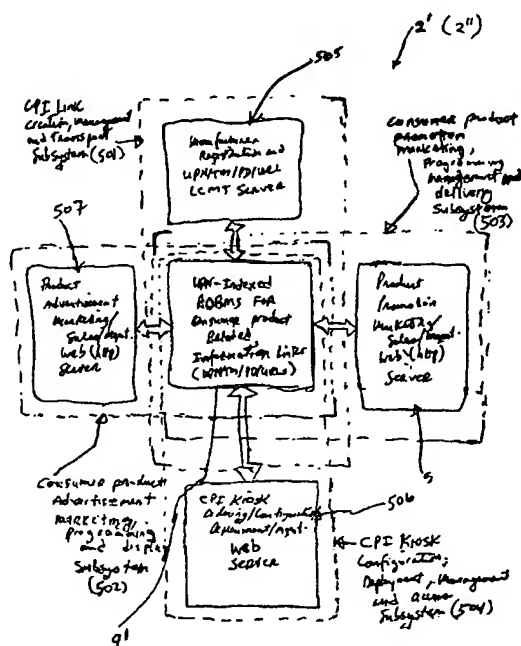 2' (2")
505
CPI Link
Creation, Management
and Transport
Subsystem (501)
Manufacturer
Registration and
UPN/TM/PD/URL
LCMT SERVER
Consumer product
promotion
marketing,
Programming
management and
delivery
Subsystem
(503)
507
Product
Advertisement
Marketing
Sales/mgmt.
Web (http)
Server
UPN-Indexed
RDBMS FOR
Consumer product
Related
Information Links
(UPN/TM/PD/URLs)
Product
Promotion
Marketing
Sales/mgmt.
Web (http)
Server
Consumer product
Advertisement
marketing,
programming
and display
Subsystem
(502)
CPI KIOSK
Ordering/Configuration
Deployment/Mgmt.
Web
SERVER
506
CPI KIOSK
Configuration,
Deployment, Management
and access
Subsystem (504)
9'